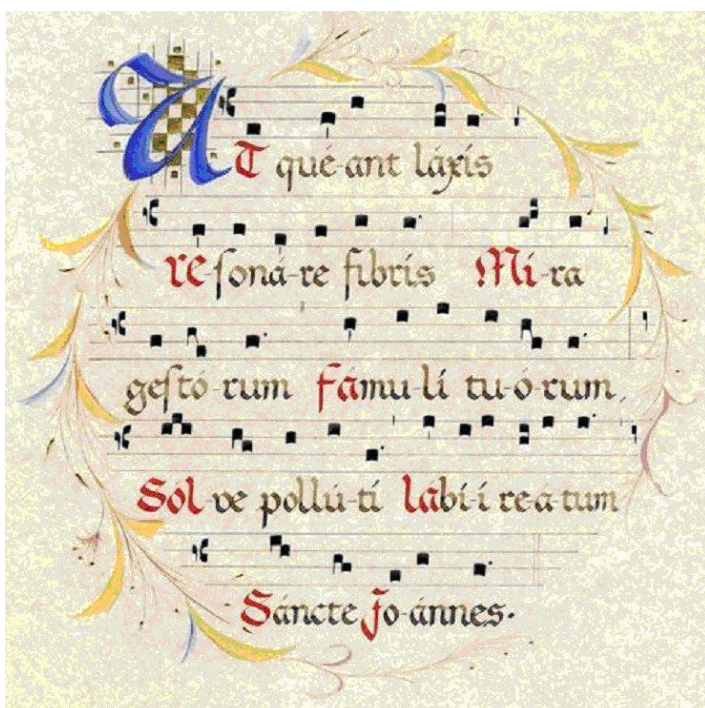 UT que-ant láxis
re-soná-re fibris Mi-ra
gestó-rum fámu-lí tu-ó-rum,
Sol-ve pollú-ti labi-i re-a-tum
Sáncte Jo-ánnes.